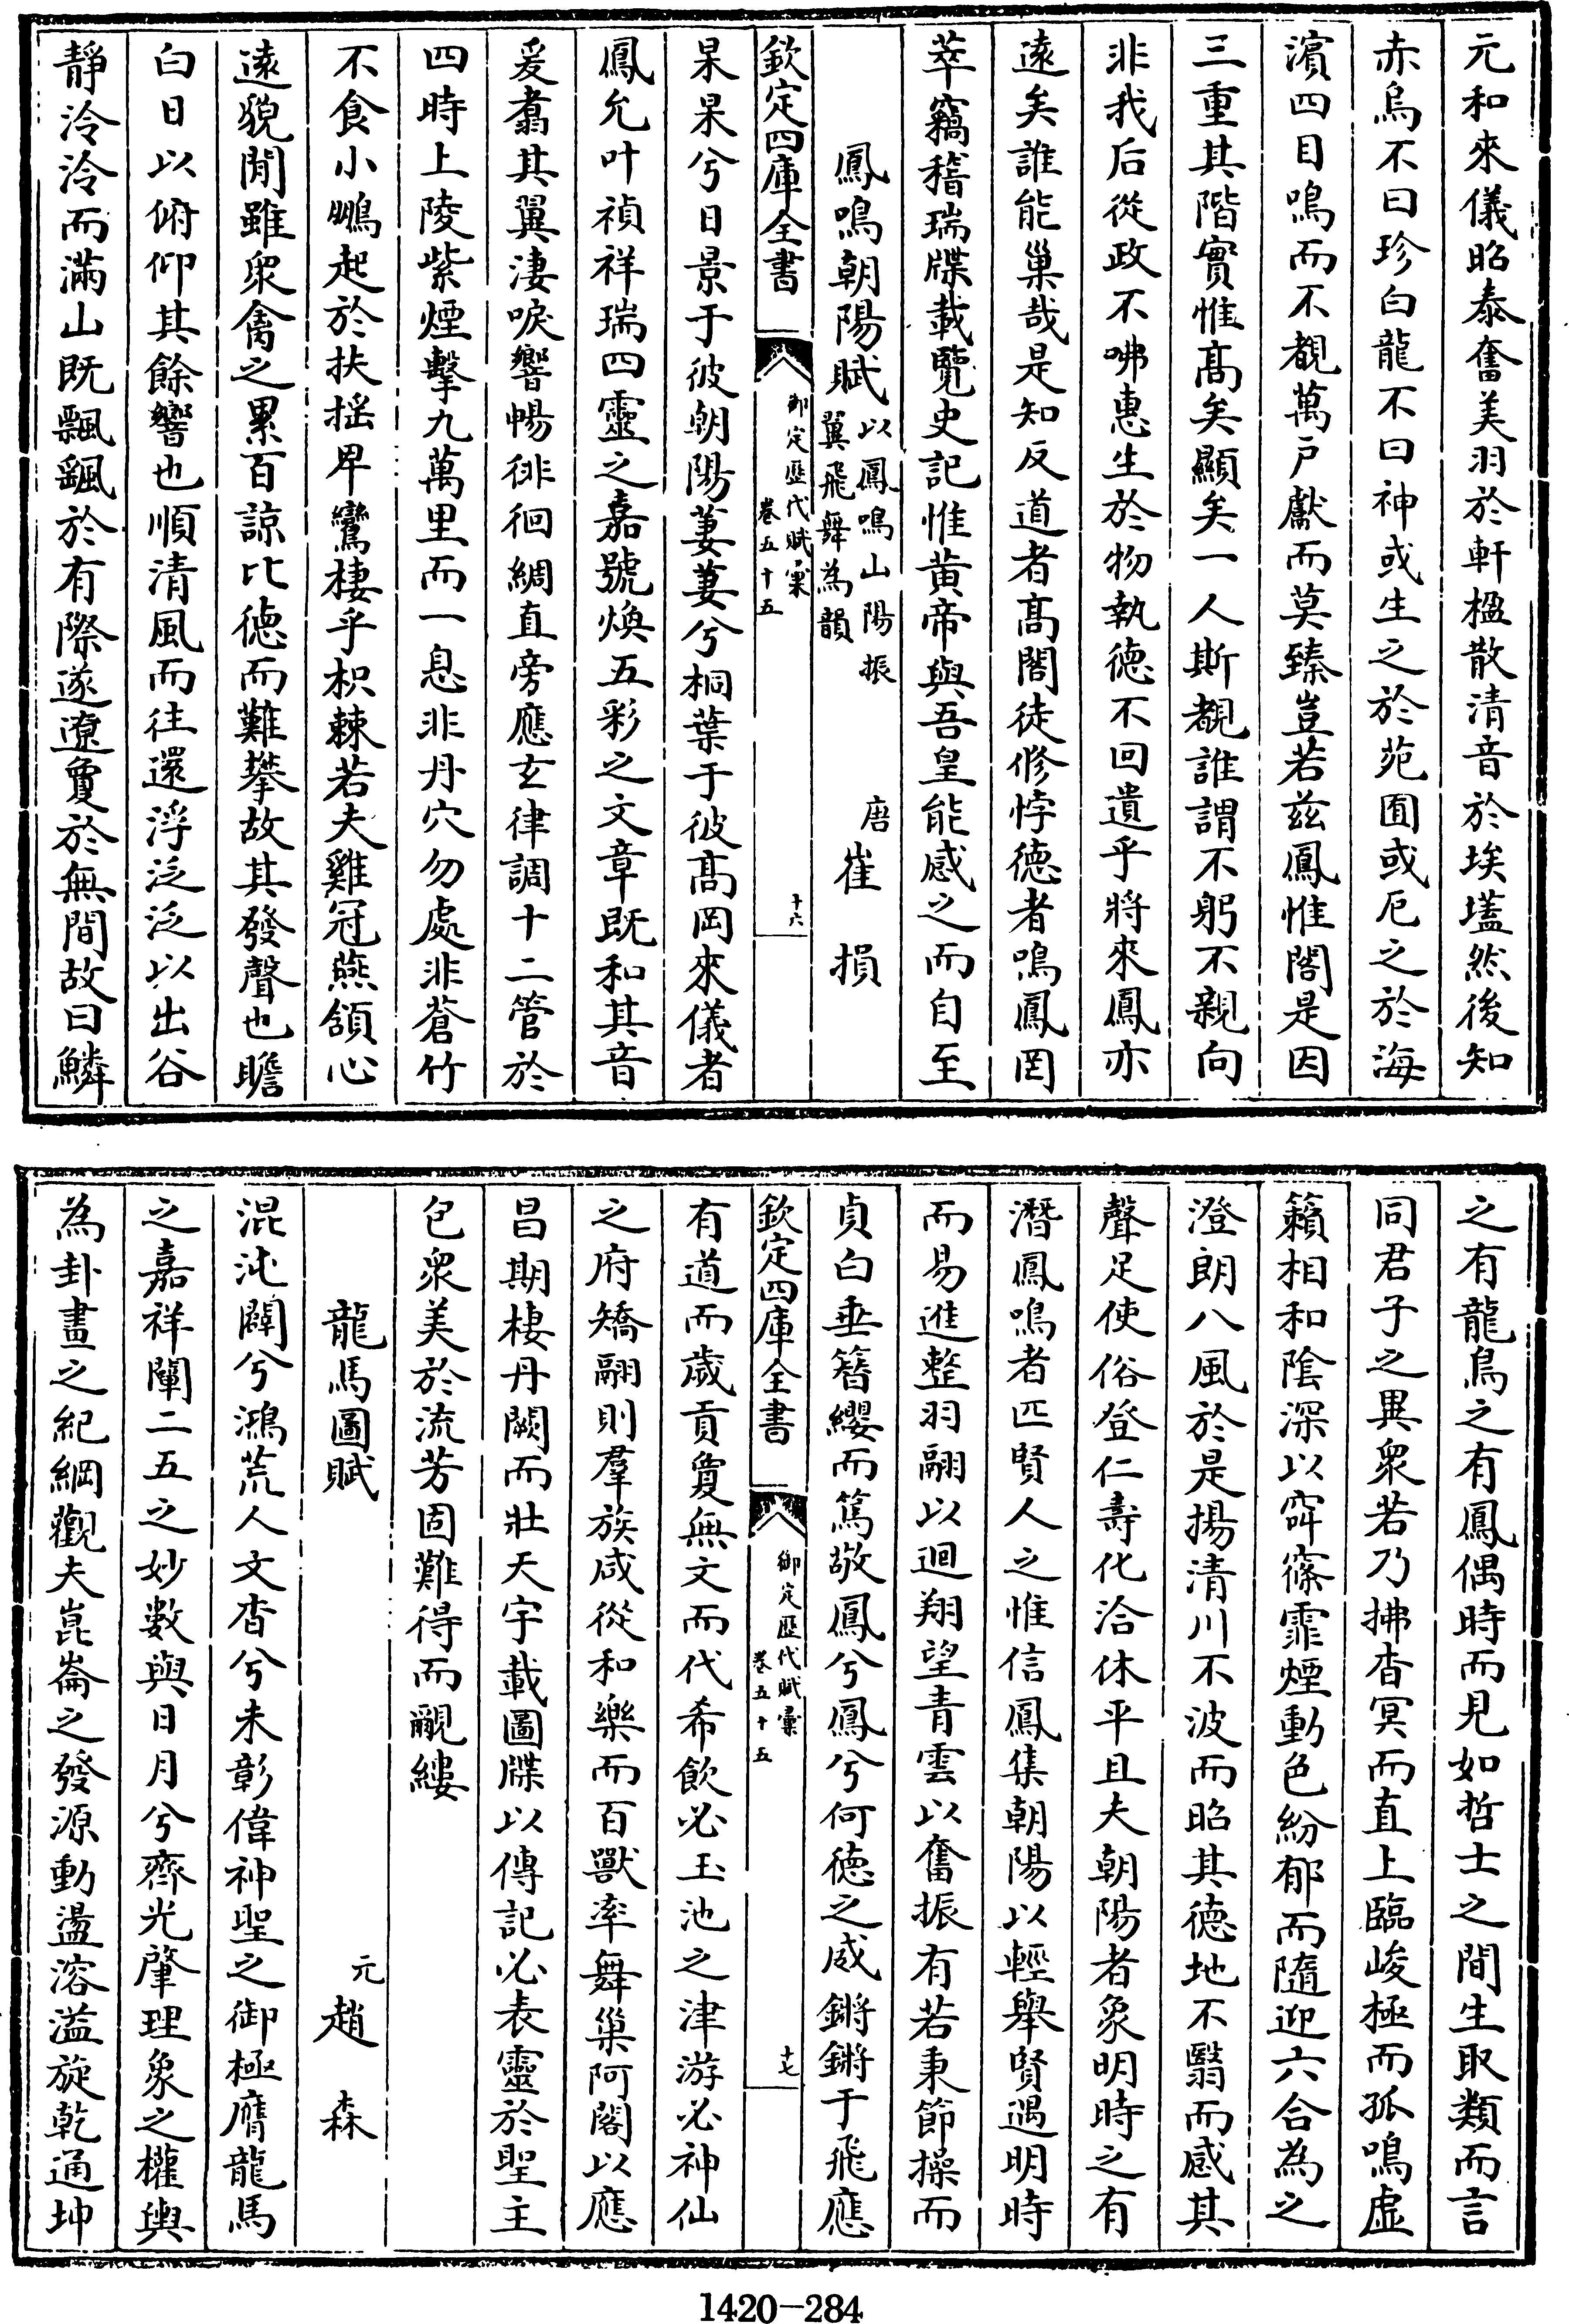 元和來儀昭泰奮美羽於軒楹散清音於埃壒然後知
赤烏不曰珍白龍不曰神或生之於苑囿或厄之於海
濱四目鳴而不覩萬戸獻而莫臻豈若兹鳳惟閤是因
三重其階實惟髙矣顯矣一人斯覩誰謂不躬不親向
非我后從政不咈惠生於物執徳不回遺乎將來鳳亦
逺矣誰能巢哉是知反道者髙閤徒修悖徳者鳴鳳罔
萃竊稽瑞牒載覽史記惟黄帝與吾皇能感之而自至
鳳鳴朝陽賦以鳳鳴山陽振翼飛舞為韻 唐崔損
欽定四庫全書 御定歴代賦彙 卷五十五 十六
杲杲兮日景于彼朝陽萋萋兮桐葉于彼髙岡來儀者
鳳允叶禎祥瑞四靈之嘉號煥五彩之文章既和其音
爰翥其翼淒唳響暢徘徊綢直旁應玄律調十二管於
四時上陵紫煙擊九萬里而一息非丹穴勿處非蒼竹
不食小鵬起於扶揺卑鸞棲乎枳棘若夫雞冠燕頷心
逺貌閒雖衆禽之累百諒比徳而難攀故其發聲也瞻
白日以俯仰其餘響也順清風而往還浮泛泛以出谷
靜泠泠而滿山既飄颻於有際遂遼敻於無間故曰鱗
之有龍鳥之有鳳偶時而見如哲士之間生取類而言
同君子之異衆若乃拂杳冥而直上臨峻極而孤鳴虛
籟相和隂深以窅篠霏煙動色紛郁而隨迎六合為之
澄朗八風於是揚清川不波而昭其徳地不翳而感其
聲足使俗登仁夀化洽休平且夫朝陽者象明時之有
潛鳳鳴者匹賢人之惟信鳳集朝陽以輕舉賢遇明時
而易進整羽翮以迴翔望青雲以奮振有若秉節操而
貞白垂簪纓而篤敬鳳兮鳳兮何徳之感鏘鏘于飛應
欽定四庫全書 御定歴代賦彙 卷五十五 十七
有道而歲貢敻無文而代希飲必玉池之津游必神仙
之府矯翮則羣族咸從和樂而百獸率舞巢阿閣以應
昌期棲丹闕而壯天宇載圖牒以傳記必表靈於聖主
包衆美於流芳固難得而覼縷
龍馬圖賦 元趙森
混沌闢兮鴻荒人文杳兮未彰偉神聖之御極膺龍馬
之嘉祥闡二五之妙數與日月兮齊光肇理象之權輿
為卦畫之紀綱觀夫崑崙之發源動盪溶溢旋乾通坤
1420-284